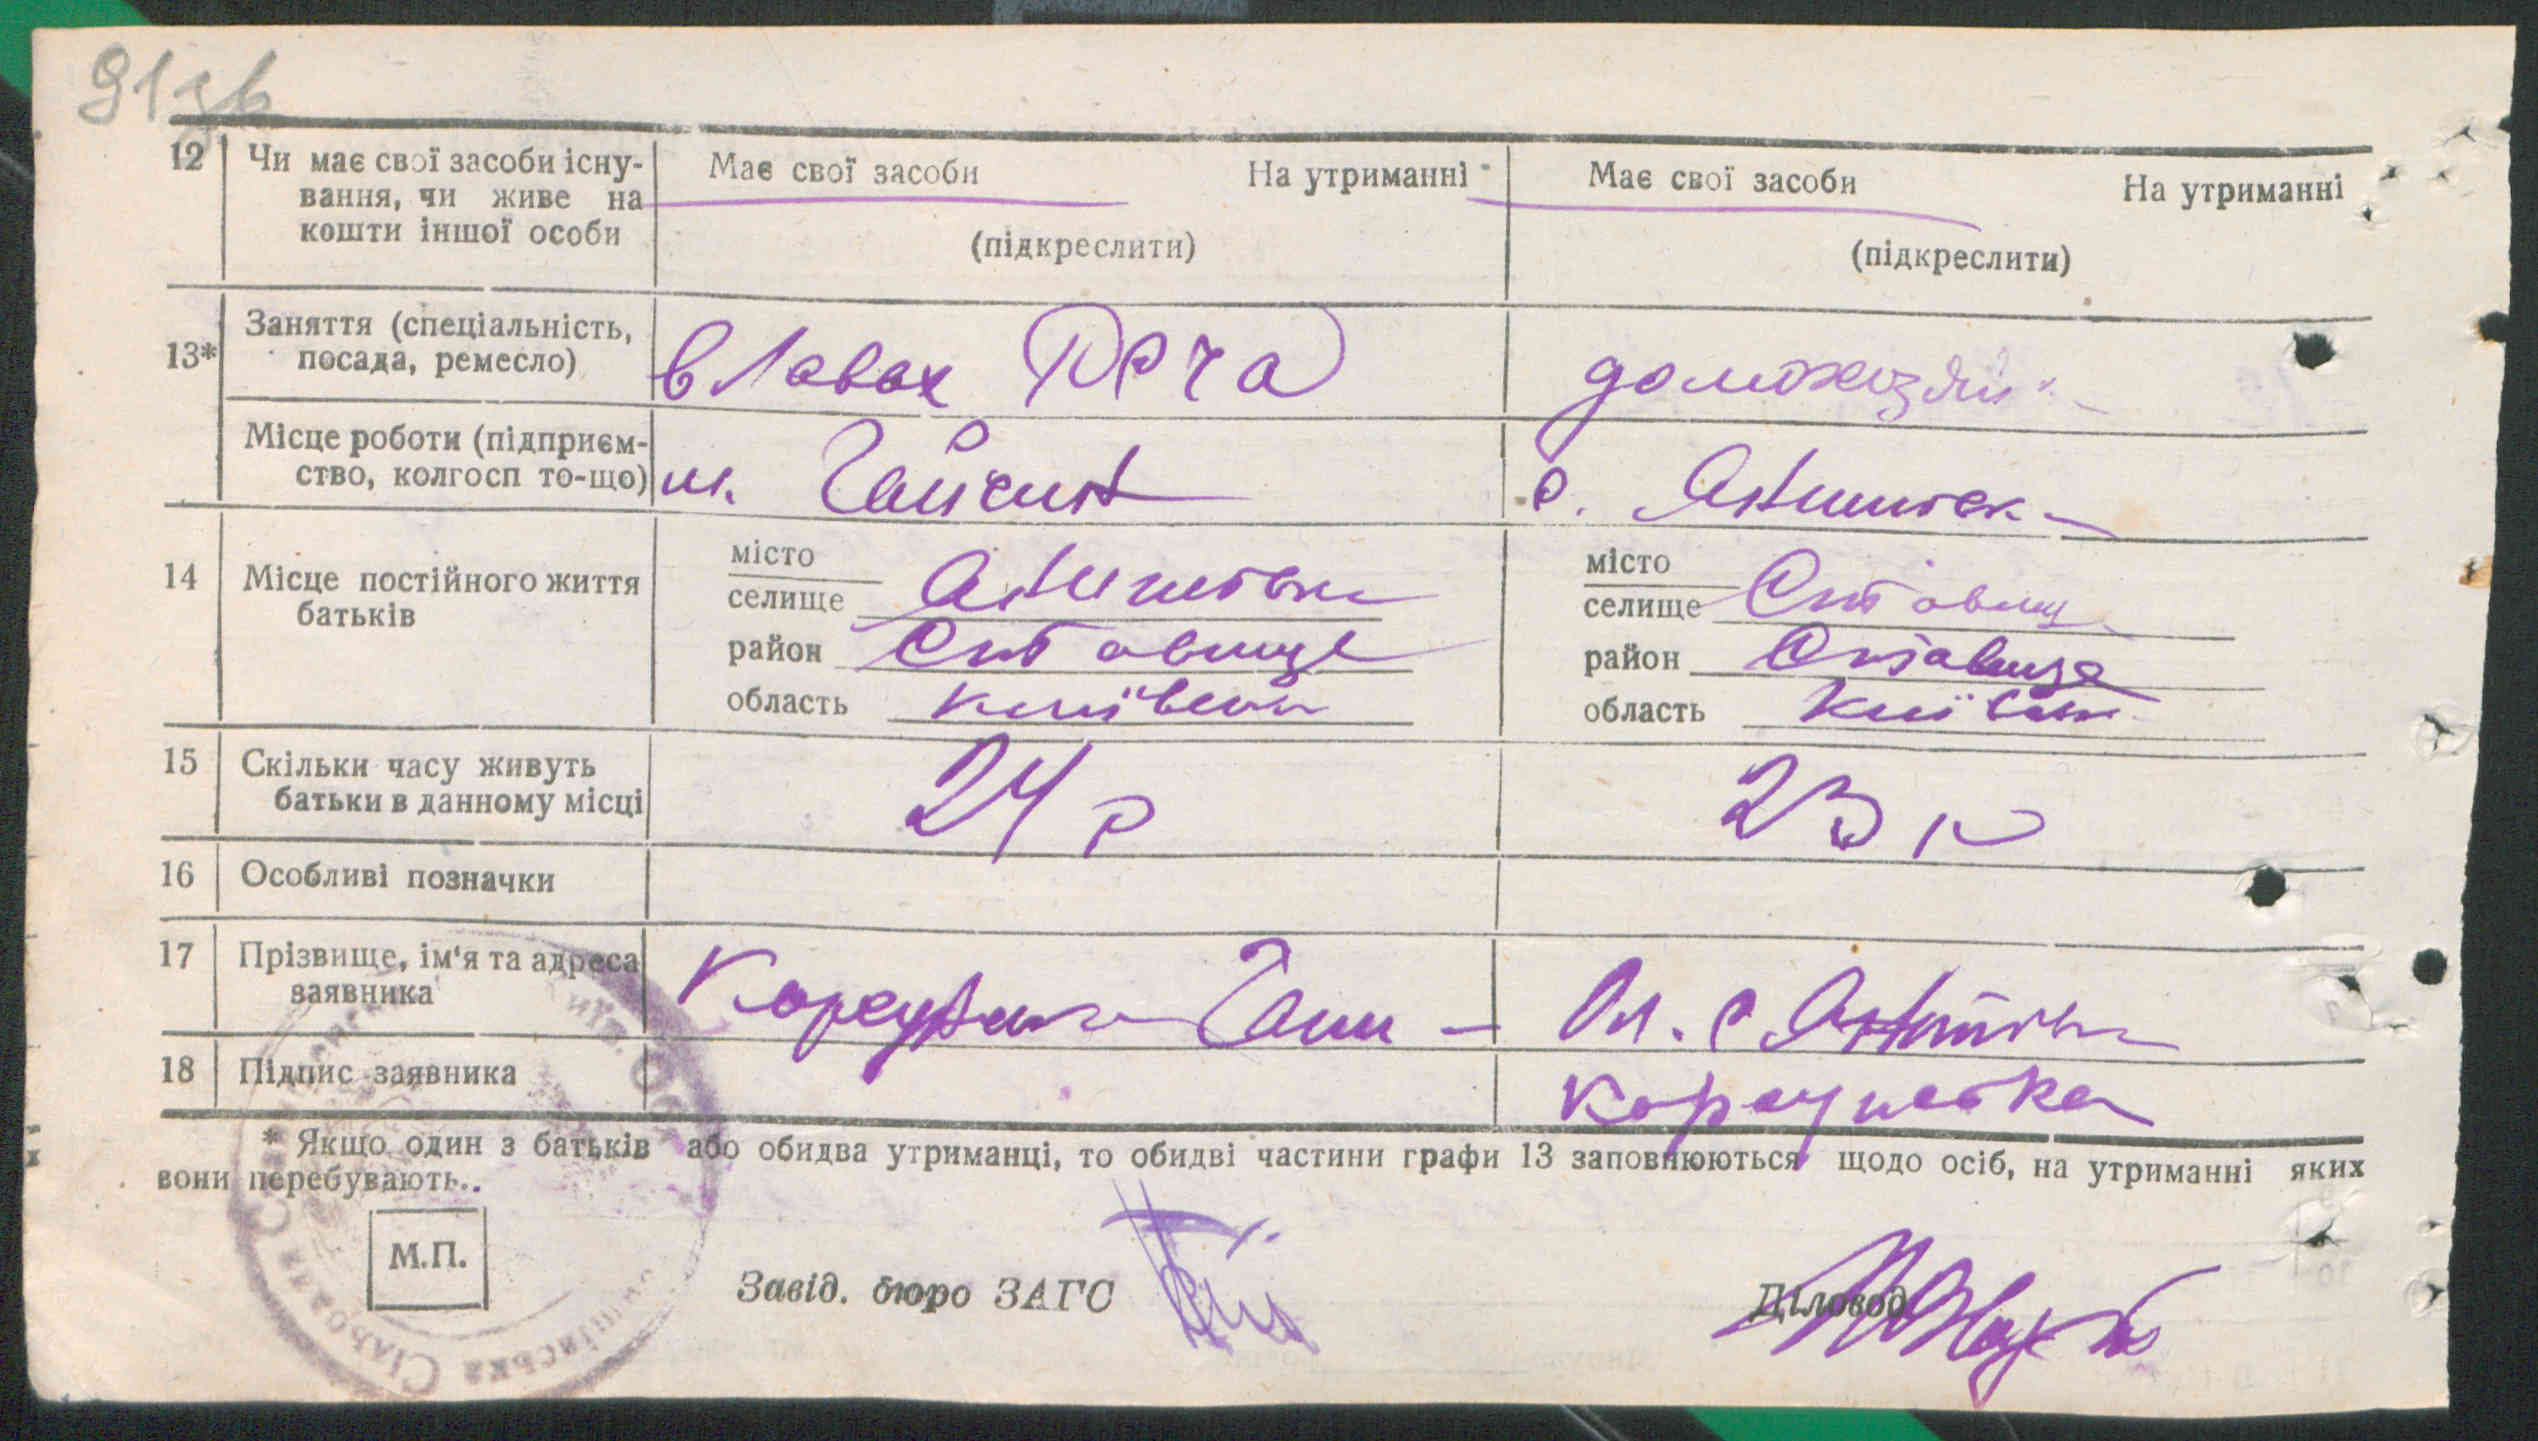 91зв
12 Чи має свої засоби існу- Має свої засоби На утриманні Має свої засоби На утриманні
вання, чи живе на
кошти іншої особи (підкреслити) (підкреслити)
13* Заняття (спеціальність, в Лавах РСЧА домохозяй
посада, ремесло)
Місце роботи (підприєм- м. Гайсин с.
ство, колгосп то-що)
14 Місце постійного життя місто місто
батьків селище селище Ставищ
район Ставище район Ставище
область Київськ область Київськ
15 Скільки часу живуть 24 р 23 р
батьки в данному місці
16 Особливі позначки
17 Прізвище, ім'я та адреса Ган
заявника
18 Підпис заявника
* Якщо один з батьків або обидва утриманці, то обидві частини графи 13 заповнюються щодо осіб, на утриманні яких
вони перебувають.
М.П.
Завід. бюро ЗАГС Діловод